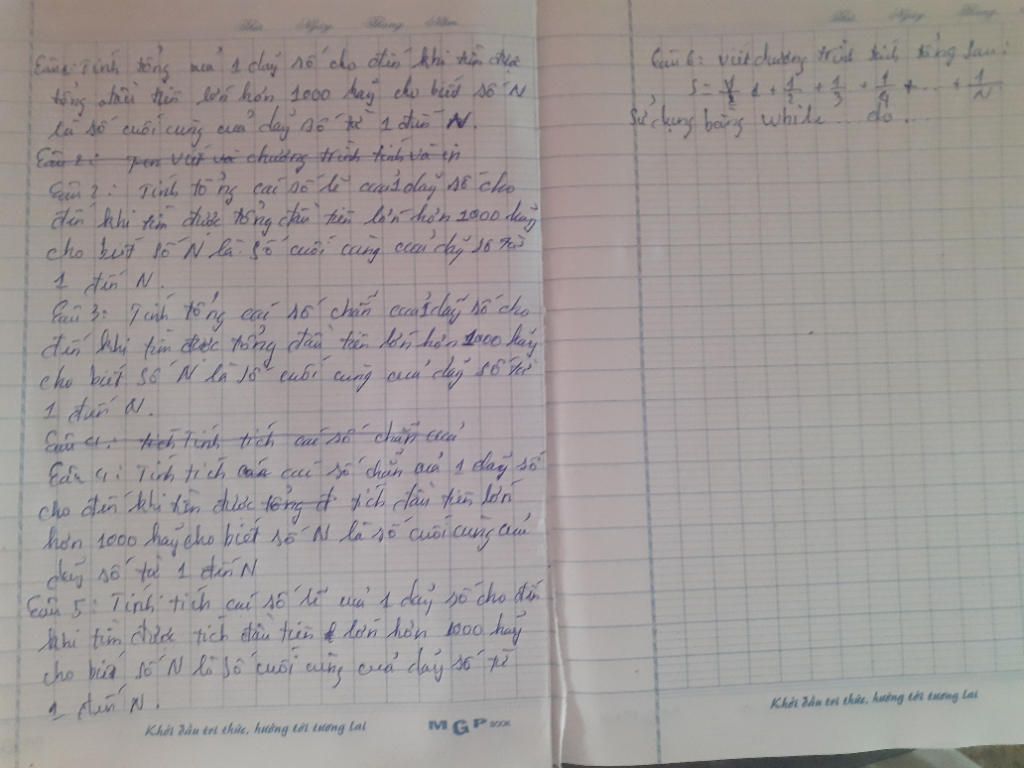 Thứ Ngày Tháng Năm
Câu 1: Tính tổng của 1 dãy số cho đến khi tìm được
tổng đầu tiên lớn hơn 1000 hãy cho biết số N
là số cuối cùng của dãy số từ 1 đến N.
Câu 2: viết và chương trình tính và in
Câu 2: Tính tổng cái số lẽ của 1 dãy số cho
đến khi tìm được tổng đầu tiên lớn hơn 1000 hãy
cho biết số N là số cuối cùng của dãy số từ
1 đến N.
Câu 3: Tính tổng cái số chẵn của 1 dãy số cho
đến khi tìm được tổng đầu tiên lớn hơn 1000 hãy
cho biết số N là số cuối cùng của dãy số từ
1 đến N.
Câu 4: tích Tính tích cái số chẵn của
Câu 4: Tính tích của cái số chẵn của 1 dãy số
cho đến khi tìm được tổng đ tích đầu tiên lớn
hơn 1000 hãy cho biết số N là số cuối cùng của
dãy số từ 1 đến N
Câu 5: Tính tích cái số lẽ của 1 dãy số cho đến
khi tìm được tích đầu tiên lớn hơn 1000 hãy
cho biết số N là số cuối cùng của dãy số từ
1 đến N.
Khởi đầu tri thức, hướng tới tương lai MGP BOOK
Thứ Ngày Tháng
Câu 6: viết chương trình tính tổng sau:
S = 1 + 1/2 + 1/3 + 1/4 + ... + 1/N
Sử dụng bằng while... do...
Khởi đầu tri thức, hướng tới tương lai